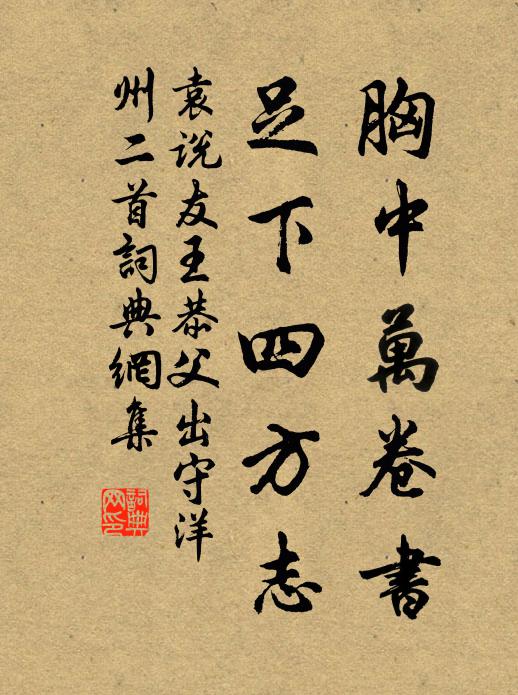 胸中萬卷書
足下四方志
袁说友王恭父出守洋
州二首詞典網集
詞典
网印